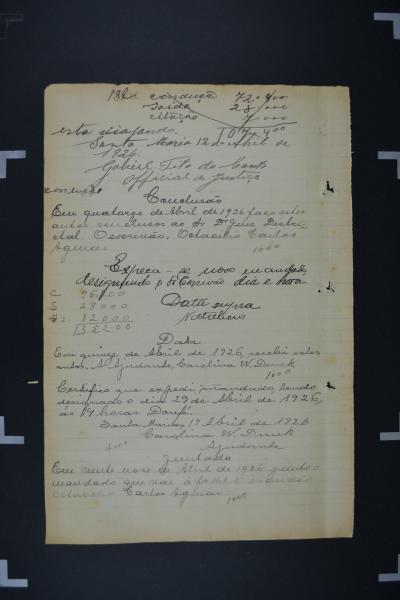 18 L conducção 72.400
Saida 28.000
citação 7.000
esta viajando. 107.400
Santa Maria 12 de Abril de
1926
Gabriel Tito do Canto
Official de Justiça
Conclusão
Em quatorze de Abril de 1926 faço estes
autos conclusos ao Sr. Dr. Juiz Distri
ctal. O escrivão, Octacilio Carlos
Aguiar 1000
Expeça-se novo mandado,
designando o Sr. Escrivão dia e hora.
C 96.000
S 28.000
12000
Data supra
Natalicio
Data
Em quinze de Abril de 1926, recebi estes
autos. A Ajudante, Carolina W. Druck
1000
Certifico que expedi mandado, sendo
designado o dia 29 de Abril de 1926,
ás 14 horas. Dou fé.
Santa Maria, 17 Abril de 1926
Carolina W. Druck
4000 Ajudante
Juntada
Em vinte nove de Abril de 1926 junto o
mandado que vae á fs. O escrivão
Octacilio Carlos Aguiar 1000